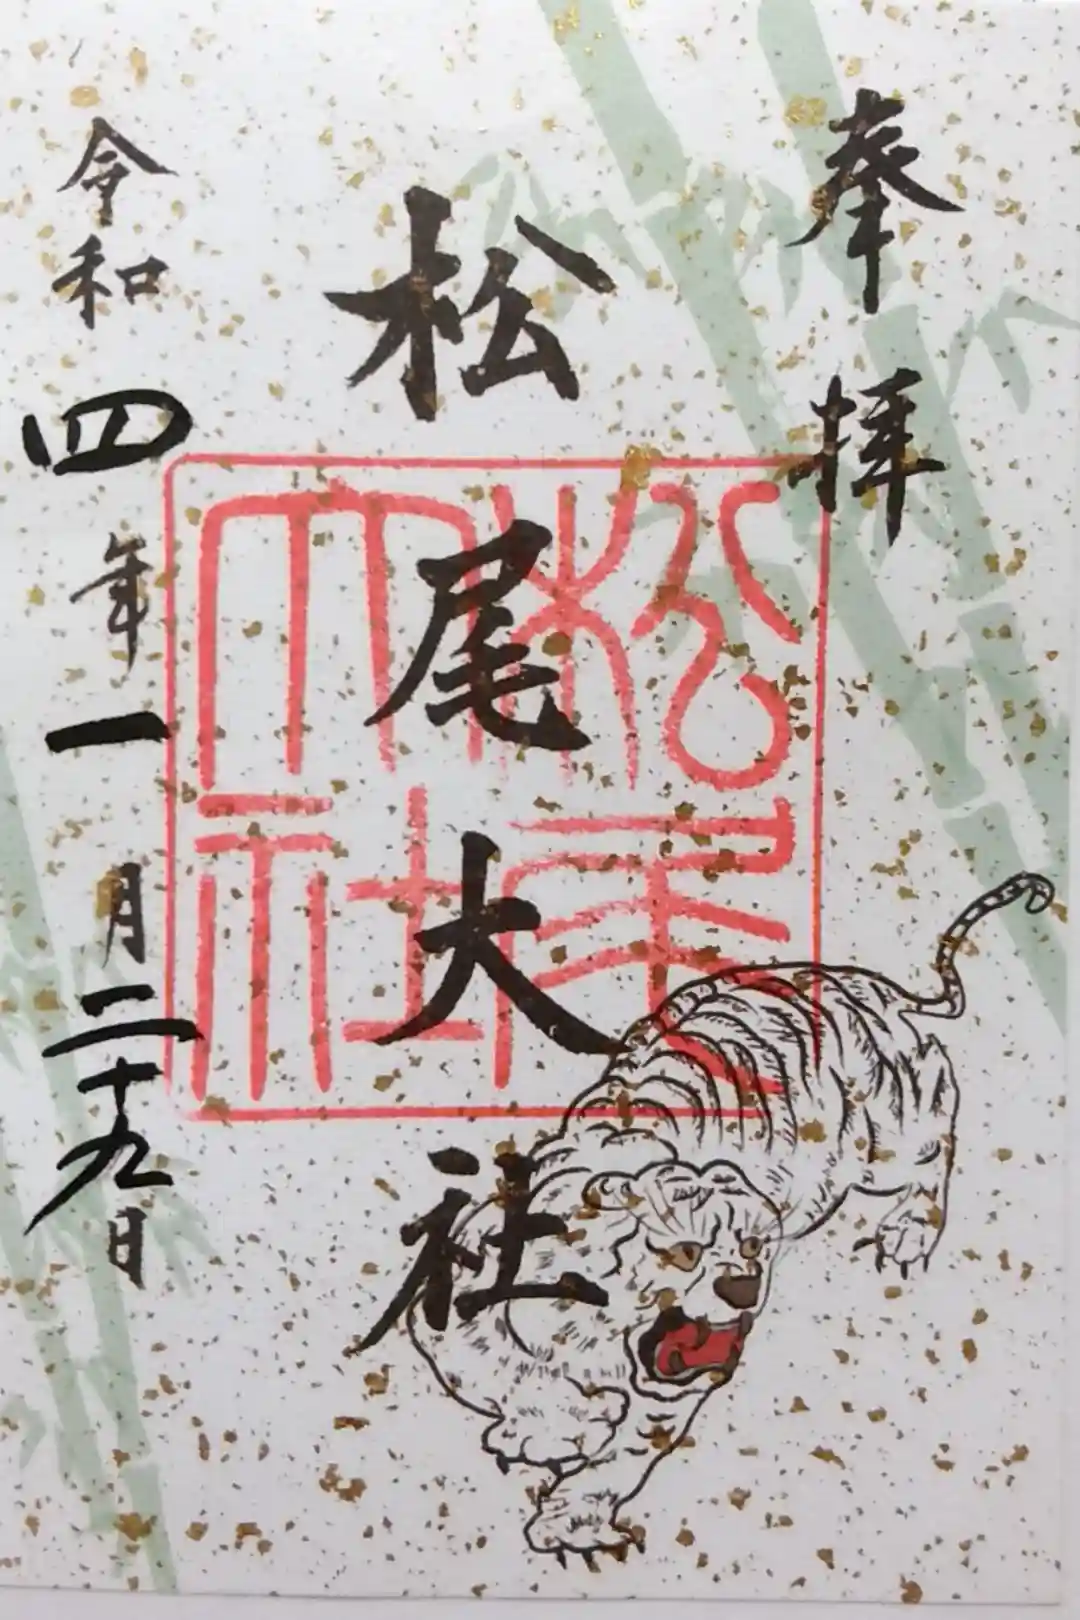 奉拝
松尾大社
松尾大社
令和四年一月二十九日